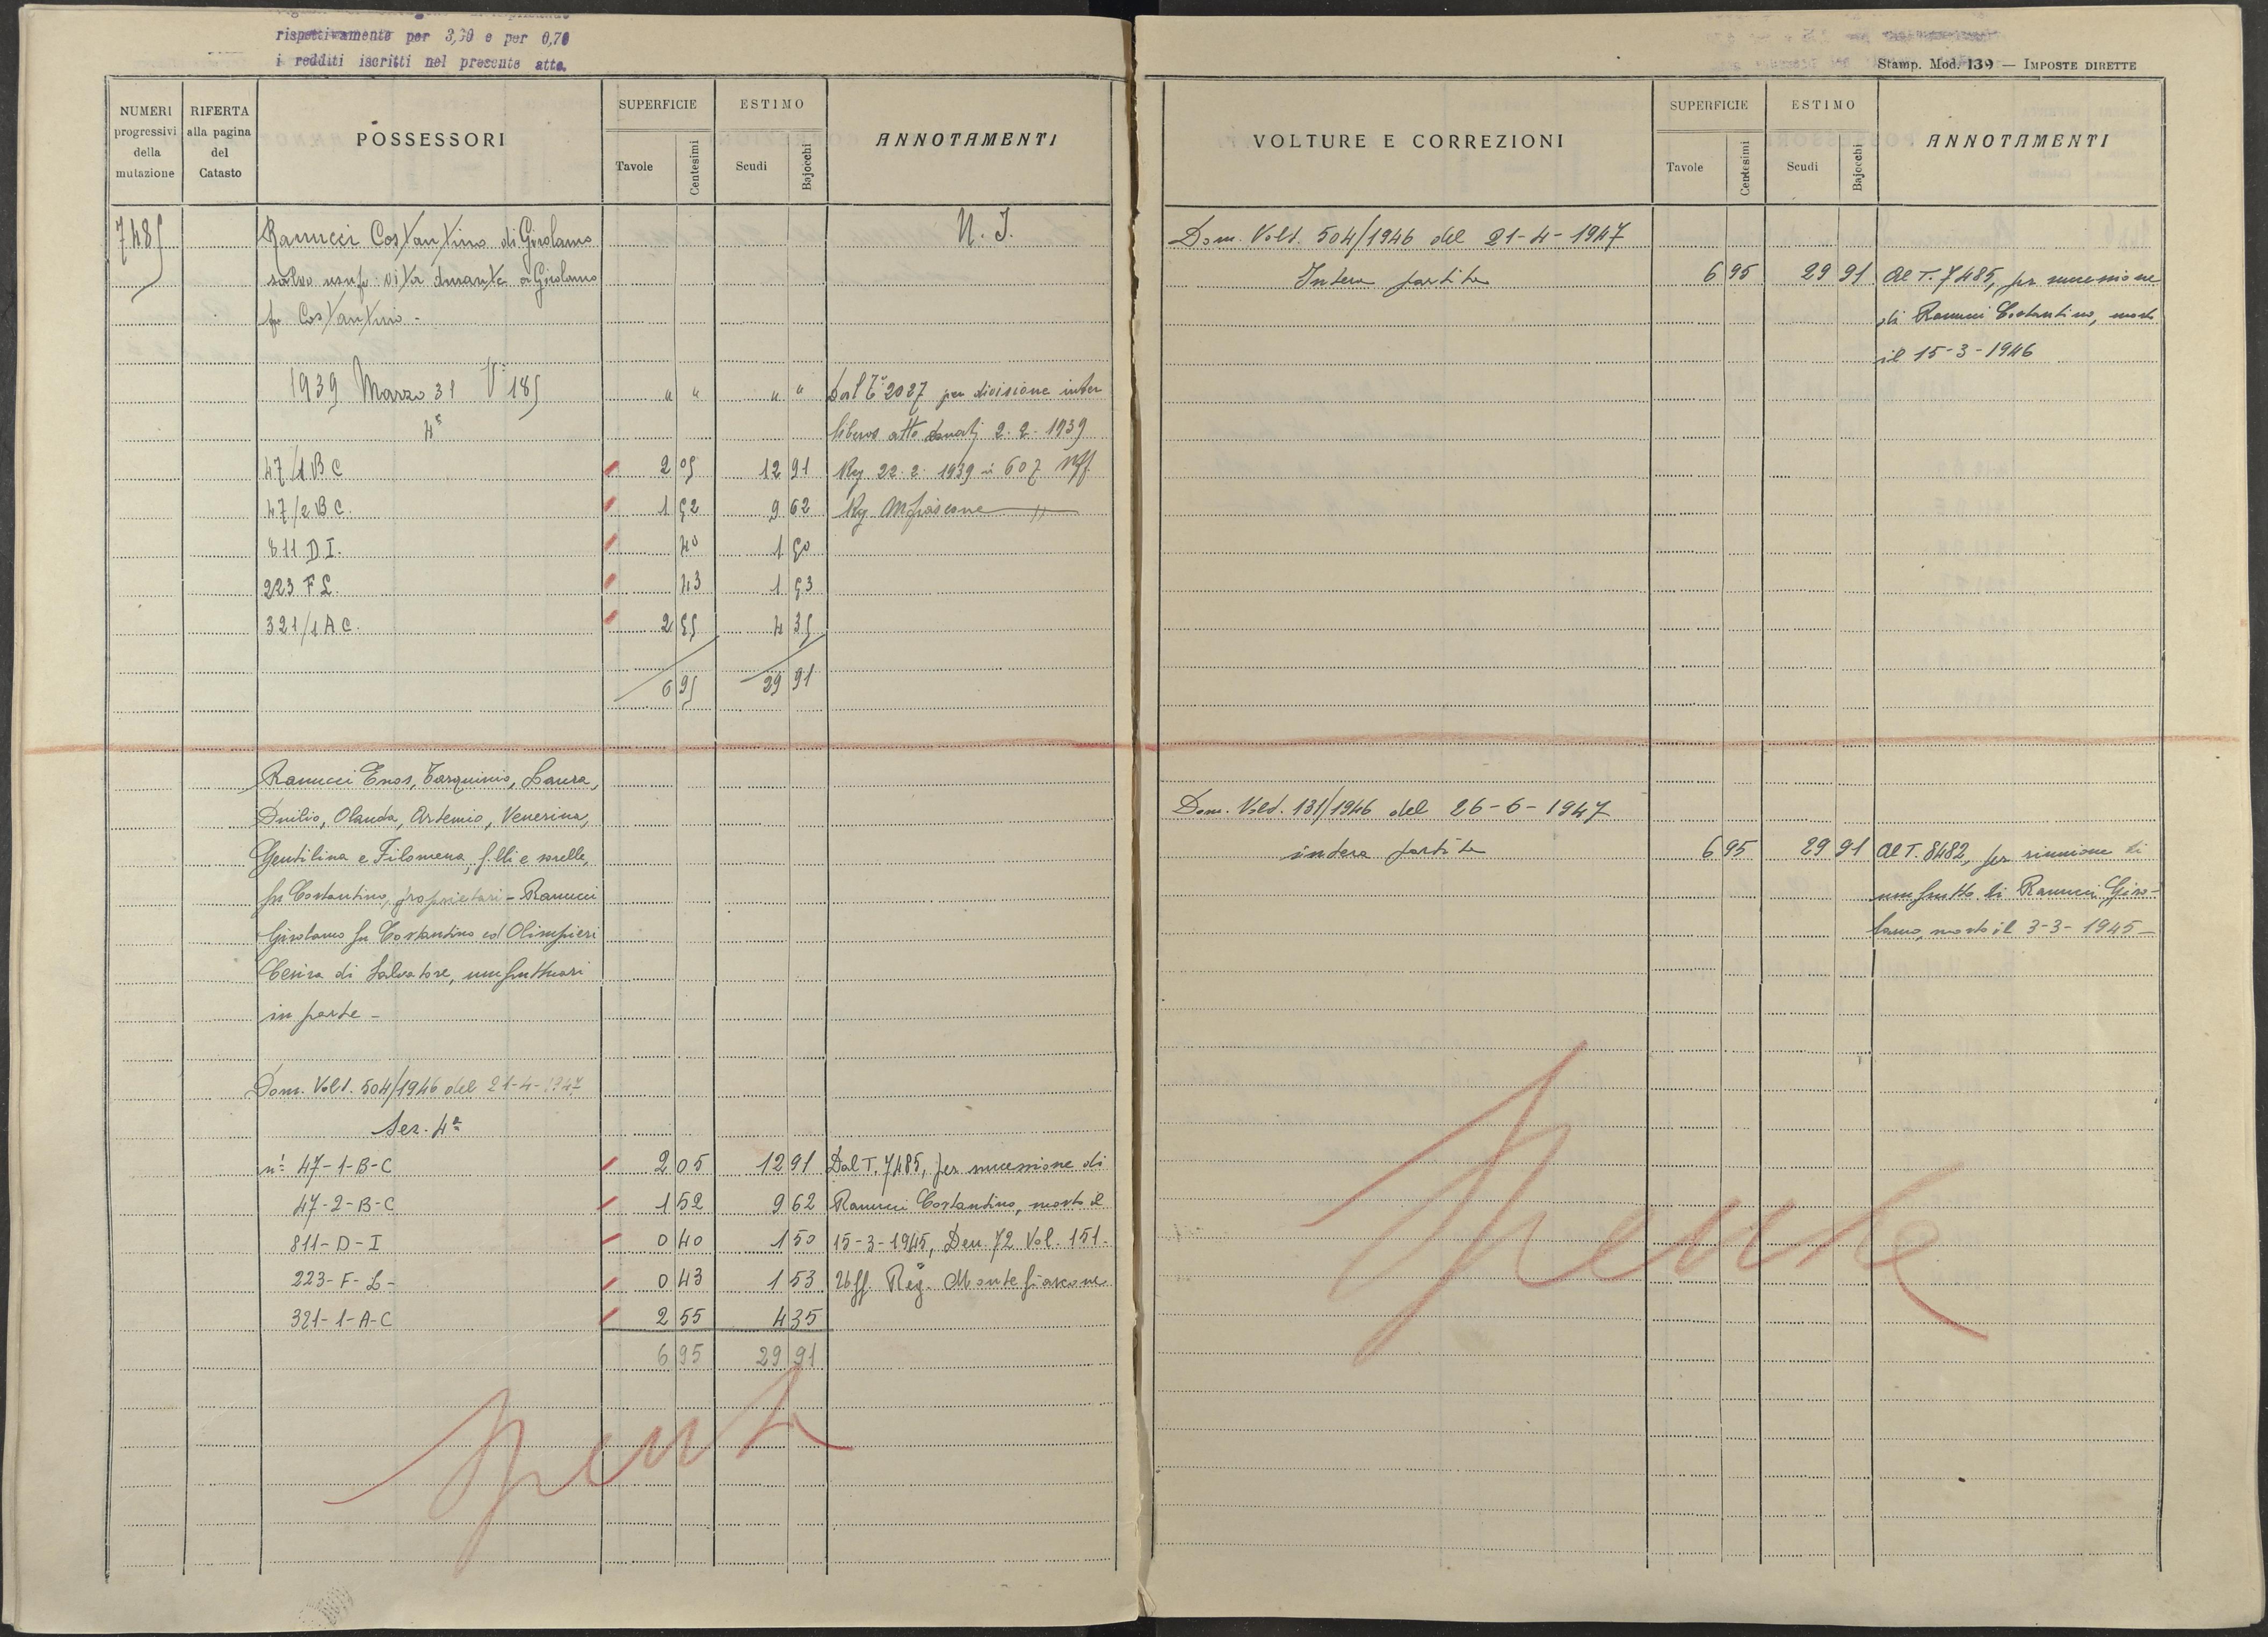 rispettivamente per 3,30 e per 0,70
i redditi iscritti nel presente atto.
NUMERI progressivi della mutazione
RIFERTA alla pagina del Catasto
POSSESSORI
SUPERFICIE
Tavole
Centesimi
ESTIMO
Scudi
Bajocchi
ANNOTAMENTI
7485
Ranucci Costantino di Girolamo
salvo usuf. vita durante a Girolamo
fu Costantino -
N. I.
1939 Marzo 31 V. 185 " " " " Dal T. 2087 per divisione inter
4ª liberos atto 2. 2. 1939
47/1 B C 2 05 12 91 Reg 22. 2. 1939 n 607 Uff.
47/2 B C. 1 52 9 62 Reg Mfiascone
811 D I. 40 1 50
223 F L. 43 1 53
321/1 A C. 2 55 4 35
6 95 29 91
Ranucci Enos, Tarquinio, Laura,
Duilio, Olanda, Artemio, Venerina,
Gentilina e Filomena, f.lli e sorelle,
fu Costantino, proprietari - Ranucci
Girolamo fu Costantino ed Olimpieri
di Salvatore, usufruttuari
in parte -
Dom. Volt. 504/1946 del 21-4-1947
Sez. 4ª
n: 47-1-B-C 2 05 12 91 Dal T. 7485, per successione di
47-2-B-C 1 52 9 62 Ranucci Costantino, morto il
811-D-I 0 40 1 50 15-3-1945, Den. 72 Vol. 151.
223-F-L- 0 43 1 53 Uff. Reg. Montefiascone
321-1-A-C 2 55 4 35
6 95 29 91
Spenta
Stamp. Mod. 139 — IMPOSTE DIRETTE
VOLTURE E CORREZIONI
SUPERFICIE
Tavole
Centesimi
ESTIMO
Scudi
Bajocchi
ANNOTAMENTI
Dom. Volt. 504/1946 del 21-4-1947
Intera partita 6 95 29 91 Al T. 7485, per successione
di Ranucci Costantino, morto
il 15-3-1946
Dom. Volt. 131/1946 del 26-6-1947
intera partita 6 95 29 91 Al T. 8482, per riunione di
usufrutto di Ranucci Giro-
lamo, morto il 3-3-1945-
Spenta